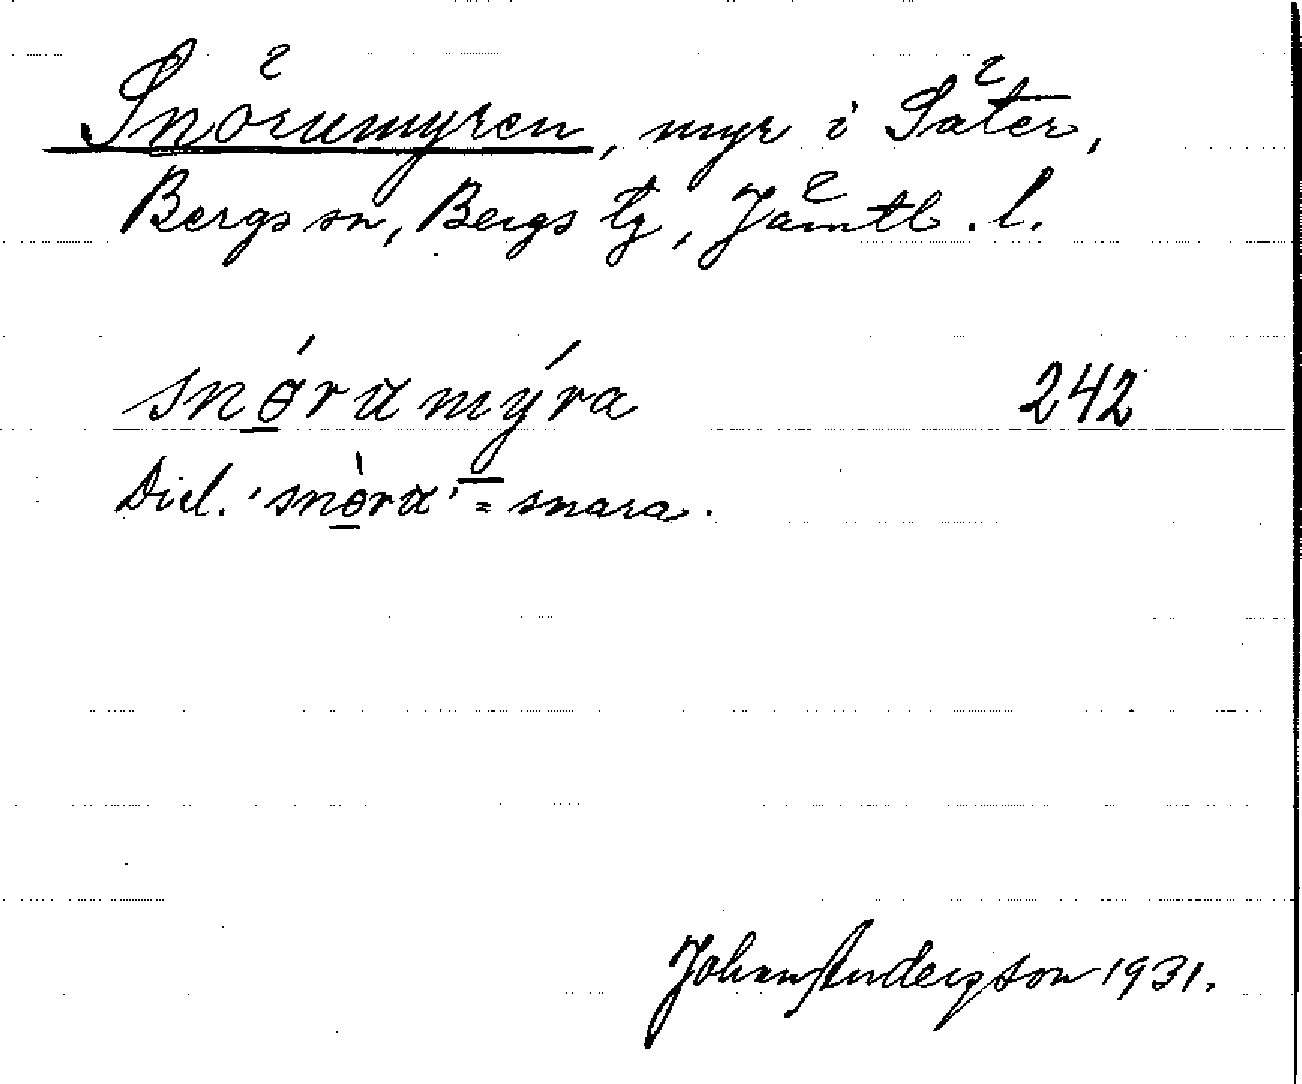 Snörumyren, myr i Säter,
Bergs sn, Bergs tg, Jämtl. l.
snǿ̱rumýra 242
Dial. 'snø̱̀ru' = snara.
Johan Anderzson 1931.